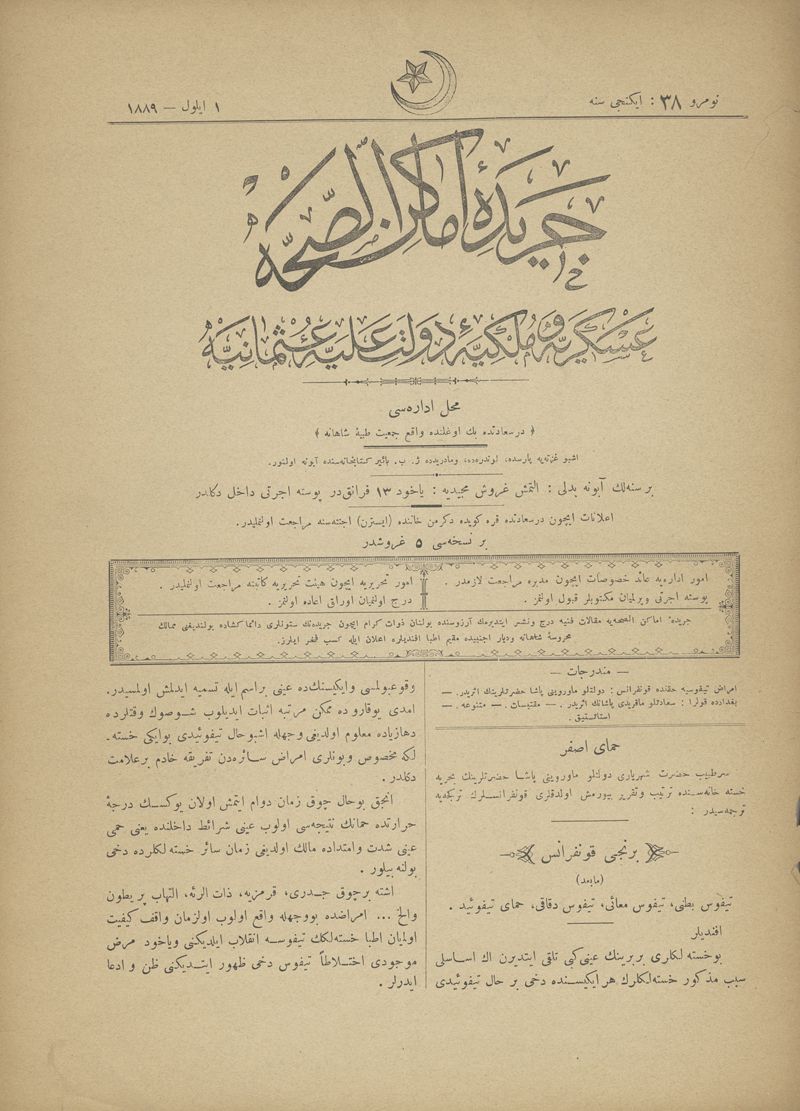 نومرو ٣٨ : ایكنجی سنه
١ ایلول — ١٨٨٩
جریدهٔ اماكن الصحّه
عسكریه و ملكیهٔ دولت علیهٔ عثمانیه
محل اداره‌سی
﴿ درسعادتده بك اوغلنده واقع جمعیت طبیهٔ شاهانه ﴾
اشبو غزته‌یه پارسده، لوندره‌ده، ومادریدده ژ. ب. بائیر كتابخانه‌سنده آبونه اولنور.
بر سنه‌لك آبونه بدلی : التمش غروش مجیدیه : یاخود ١٣ فرانق‌در پوسته اجرتی داخل دكلدر
اعلانات ایچون درسعادتده قره كویده دكرمن خاننده (ایسترن) اجنته‌سنه مراجعت اولنملیدر.
بر نسخه‌سی ٥ غروشدر
امور اداره‌یه عائد خصوصات ایچون مدیره مراجعت لازمدر .
پوسته اجرتی ویرلمیان مكتوبلر قبول اولنمز .
امور تحریریه ایچون هیئت تحریریه كاتبنه مراجعت اولنملیدر .
درج اولنمیان اوراق اعاده اولنمز .
جریدهٔ اماكن الصحه‌یه مقالات فنیه درج ونشر ایتدیرمك آرزوسنده بولنان ذوات كرام ایچون جریده‌نك ستونلری دائما كشاده بولندیغنی ممالك
محروسهٔ شاهانه ودیار اجنبیده مقیم اطبا افندیلره اعلان ایله كسب فخر ایلرز.
— مندرجات —
امراض تیفوسیه حقنده قونفرانس : دولتلو ماوروینی پاشا حضرتلرینك اثریدر. —
بغدادده قولرا : سعادتلو ماقریدی پاشانك اثریدر. — مقتبسات. — متنوعه. —
استاتستیق .
حمای اصفر
سرطبیب حضرت شهریاری دولتلو ماورویتی پاشا حضرتلرینك بحریه
خسته خانه‌سنده ترتیب وتقریر بیورمش اولدقلری قونفرانسلرك تركجه‌یه
ترجمه‌سیدر :
برنجی قونفرانس
(مابعد)
تیفوس بطنی، تیفوس معائی، تیفوس دقاقی، حمای تیفوئید .
افندیلر
بوخسته لكلری بربرینك عینی‌كبی تلقی ایتدیرن اك اساسلی
سبب مذكور خسته‌لكلرك هر ایكیسنده دخی بر حال تیفوئیدی
وقوعبولمسی وایكیسنك‌ده عینی براسم ایله تسمیه ایدلمش اولمسیدر.
امدی یوقاروده ممكن مرتبه اثبات ایدیلوب شوصوك وقتلرده
دهازیاده معلوم اولدیغی وجهله اشبوحال تیفوئیدی بوایكی خسته‌-
لكه مخصوص وبونلری امراض سائره‌دن تفریقه خادم برعلامت
دكلدر .
انجق بوحال چوق زمان دوام ایتمش اولان یوكسك درجهٔ
حرارتده حمانك نتیجه‌سی اولوب عینی شرائط داخلنده یعنی حمی
عینی شدت وامتداده مالك اولدیغی زمان سائر خسته لكلرده دخی
بولنه بیلور .
اشته برچوق جدری، قرمزیه، ذات الرئه، التهاب پریطون
والخ ... امراضده بووجهله واقع اولوب اولزمان واقف كیفیت
اولمیان اطبا خسته‌لكك تیفوسه انقلاب ایلدیكنی ویاخود مرض
موجودی اختلاطاً تیفوس دخی ظهور ایتدیكنی ظن و ادعا
ایدرلر .